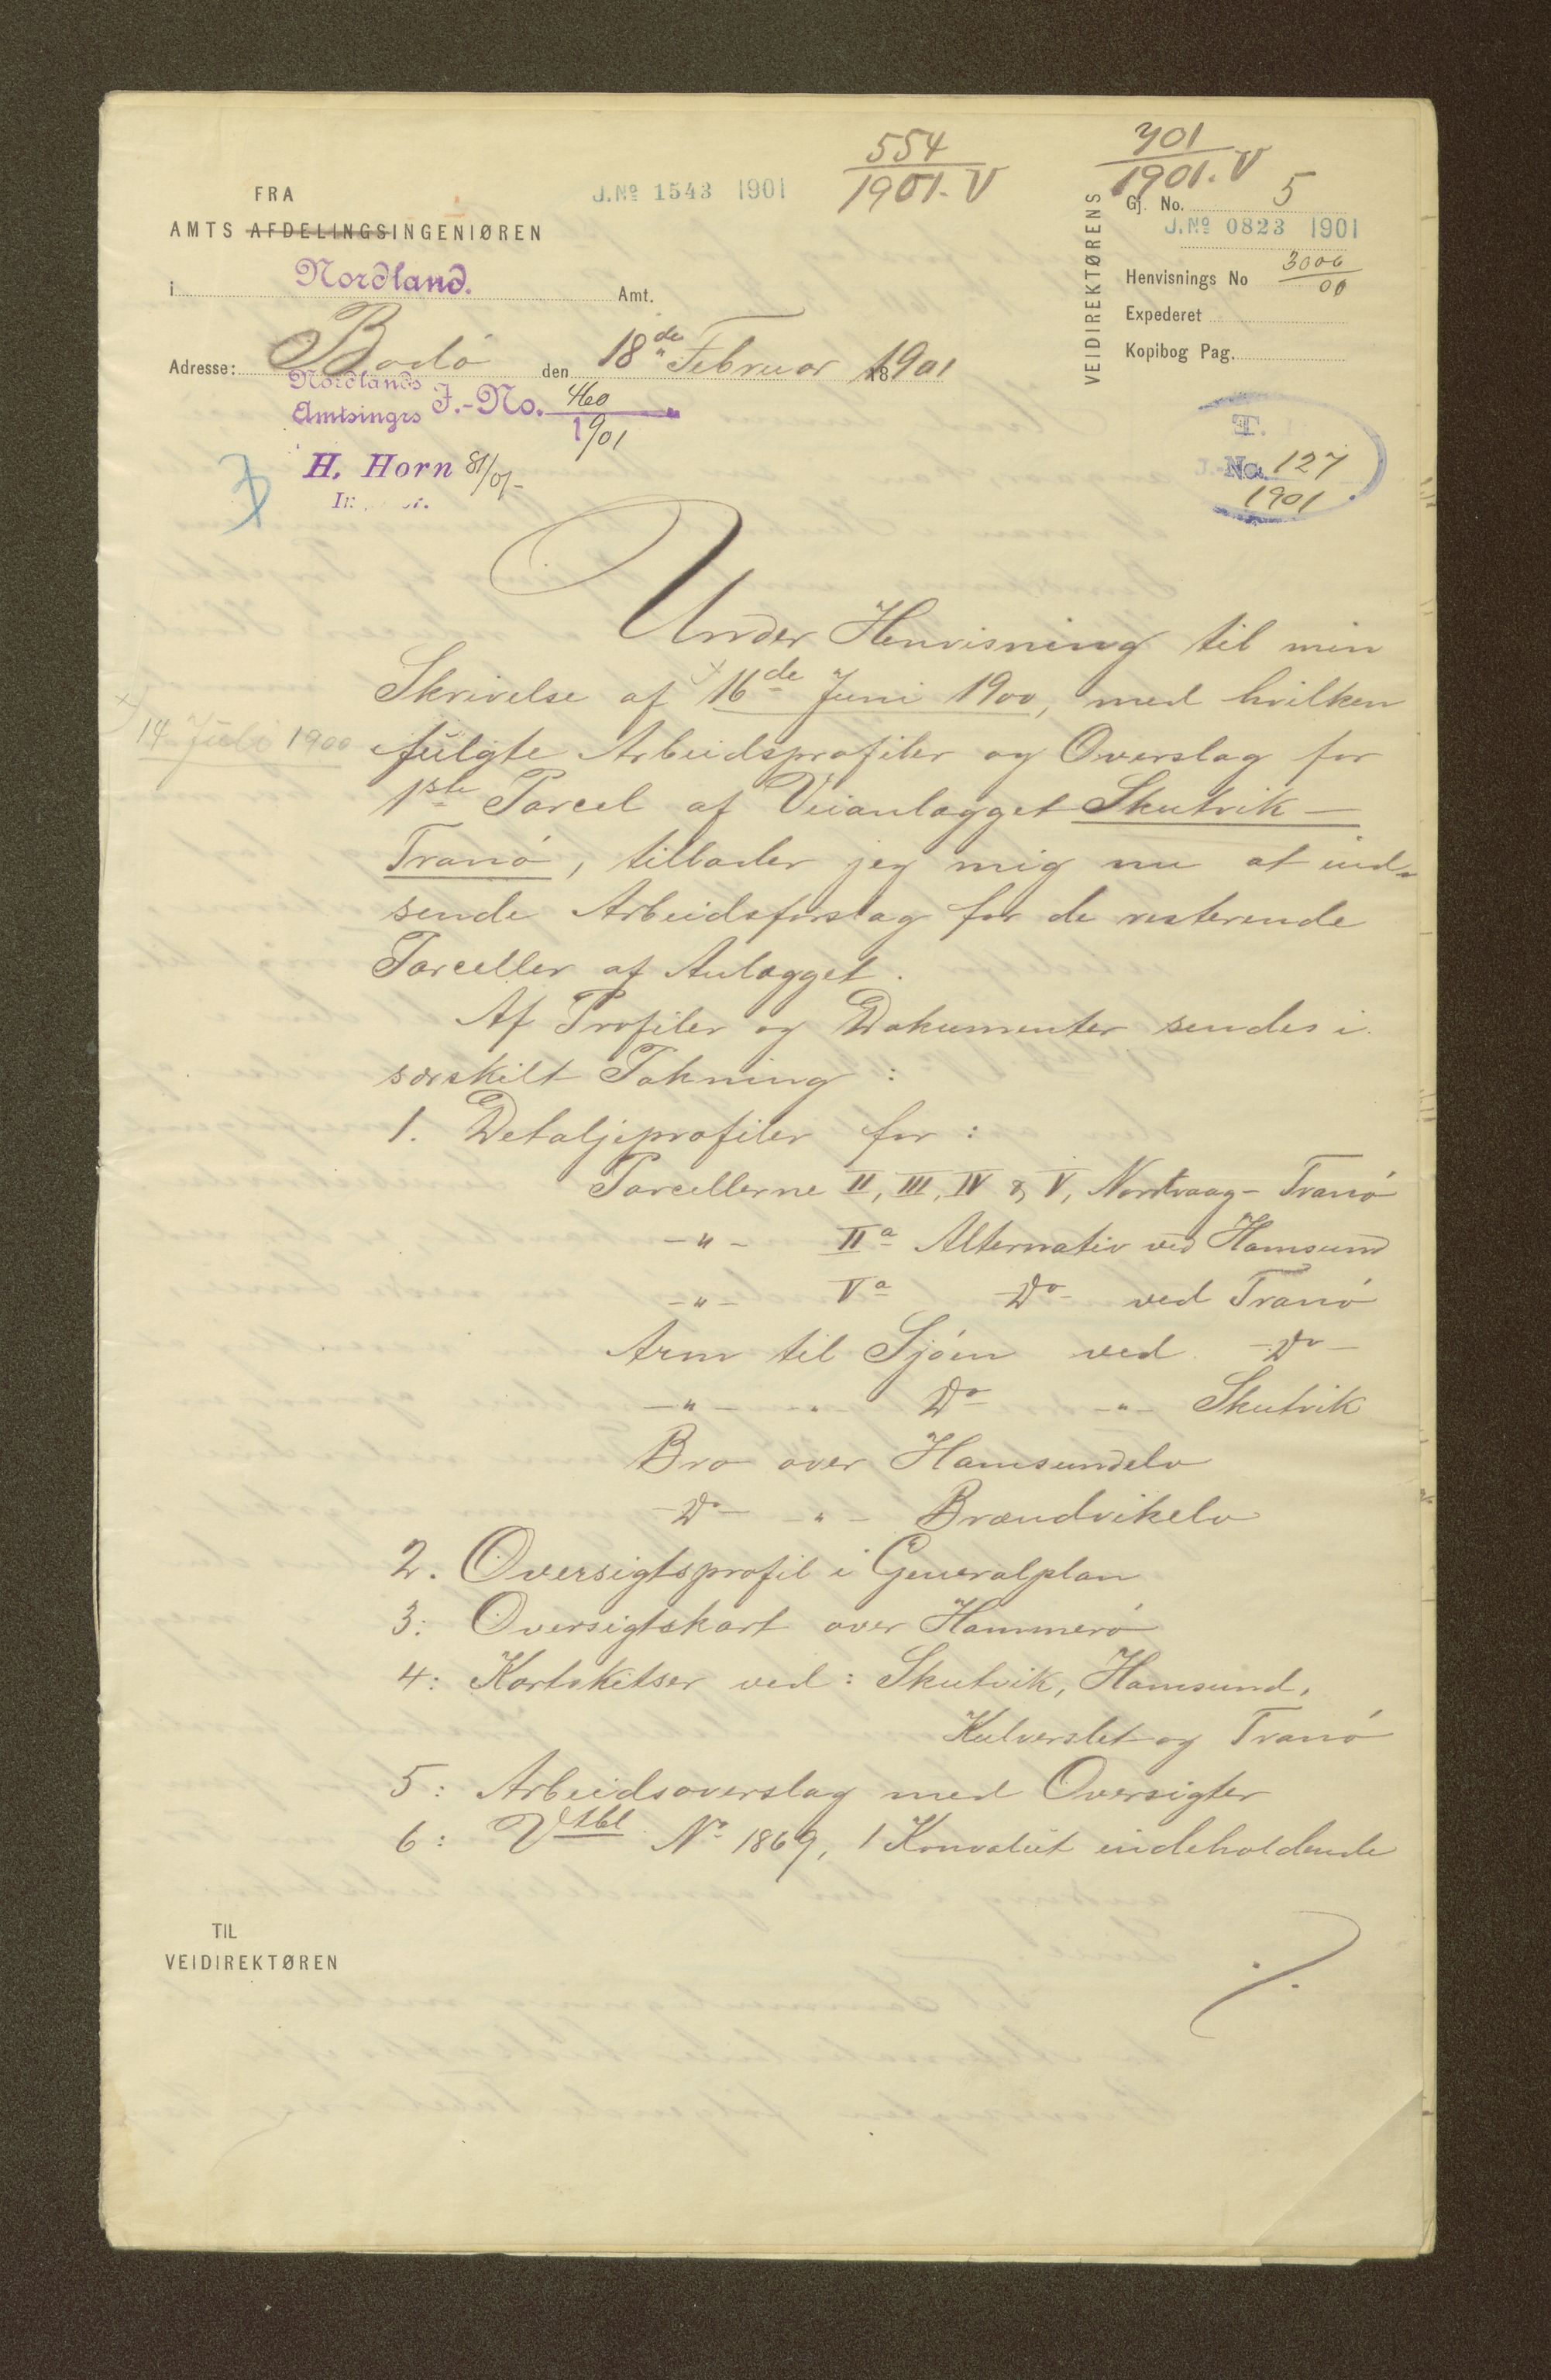 FRA
AMTS AFDELINGSINGENIØREN
i Nordland. Amt.
Adresse: Bodø den 18de Februar 1901
Nordlands Amtsingrs J.-No. 460 / 1901
H. Horn 81/01-
J.No 1543 1901
554 / 1901. V
301 / 1901. V
VEIDIREKTØRENS
Gj. No. 5
J.No 0823 1901
Henvisnings No 3006 / 00
Expederet
Kopibog Pag.
T.
J.-No. 127
1901
Under Henvisning til min
Skrivelse af x 16de Juni 1900, med hvilken
x) 14 Juli 1900
fulgte Arbeidsprofiler og Overslag for
1ste Parcel af Veianlægget Skutvik –
Tranö, tillader jeg mig nu at ind-
sende Arbeidsforslag for de resterende
Parceller af Anlægget.
Af Profiler og Dokumenter sendes i
særskilt Pakning :
1. Detaljeprofiler for :
Parcellerne II, III, IV & V, Nordvaag – Tranö
–"– IIa Alternativ ved Hamsund
–"– Va Do ved Tranö
Arm til Sjöen ved –Do–
–"– " Do –"– Skutvik
Bro over Hamsundelv
–Do– –"– Brændvikelv
2. Oversigtsprofil i Generalplan
3: Oversigtskart over Hammerö
4: Kartskitser ved : Skutvik, Hamsund,
Kulverslet og Tranö
5: Arbeidsoverslag med Oversigter
6: No 1869, 1 Konvolut indeholdende
TIL
VEIDIREKTØREN
./.